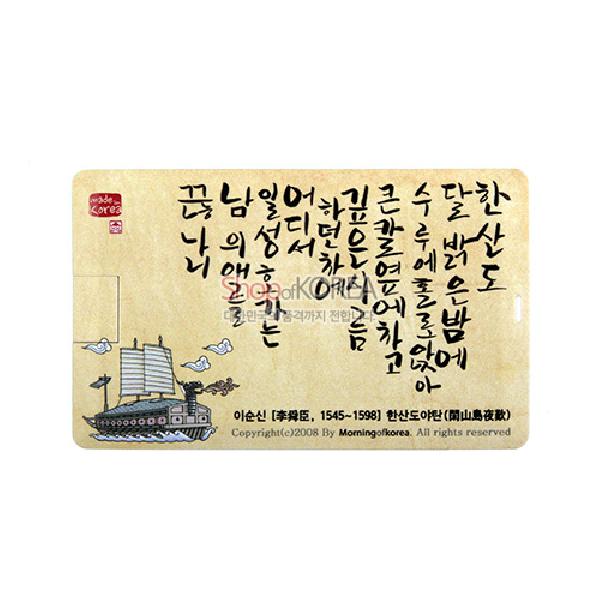 made in
Korea
한산도
달 밝은밤에
수루에홀로앉아
큰칼옆에차고
깊은시름
하던차에
어디서
일성호가는
남의애를
끊나니
ShopofKOREA
대한민국의 품격까지 전합니다
이순신 [李舜臣, 1545~1598] 한산도야탄(閑山島夜歎)
Copyright(c)2008 By Morningofkorea. All rights reserved